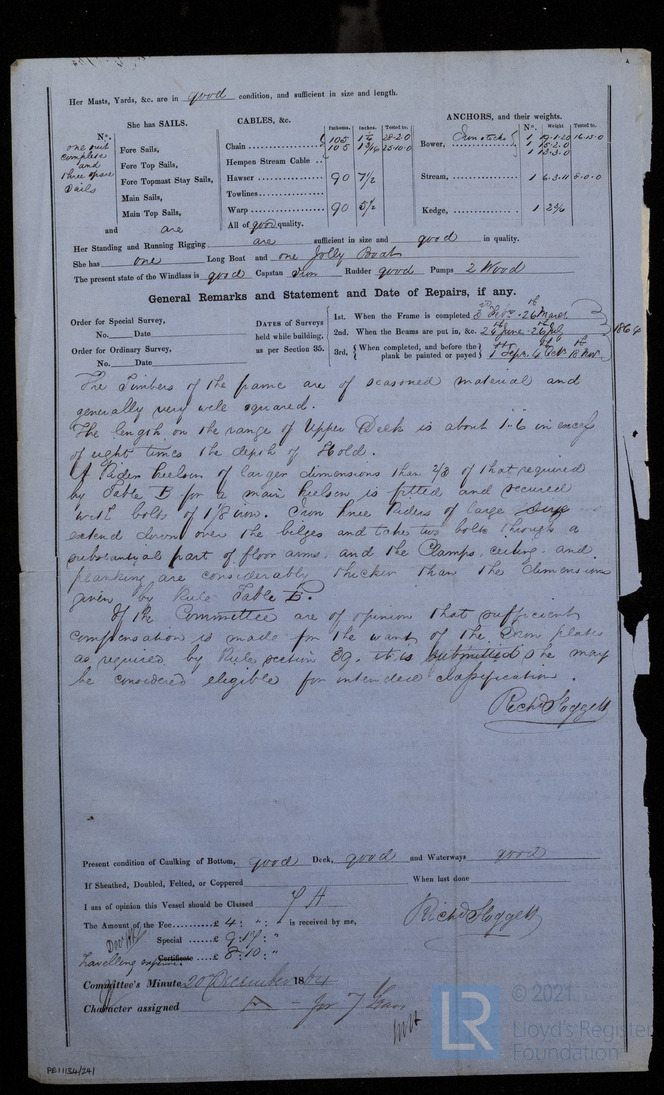 Her Masts, Yards, &c. are in good condition, and sufficient in size and length.
She has SAILS. CABLES, &c. Fathoms. Inches. Tested to. ANCHORS, and their weights. No. Weight Tested to.
No.
one suit complete and three spare Sails
Fore Sails,
Fore Top Sails,
Fore Topmast Stay Sails,
Main Sails,
Main Top Sails,
and are
Chain 105
105
Hempen Stream Cable
Hawser 90 7½
Towlines
Warp 90 5½
All of good quality.
Bower, Iron stocks 1 16.15.0
1 15.2.0
1
Stream, 1 6.3.11
Kedge, 1
Her Standing and Running Rigging are sufficient in size and good in quality.
She has one Long Boat and one Jolly Boat
The present state of the Windlass is good Capstan Iron Rudder good Pumps 2 Wood
General Remarks and Statement and Date of Repairs, if any.
Order for Special Survey,
No. Date
Order for Ordinary Survey,
No. Date
DATES of Surveys held while building, as per Section 35.
1st. When the Frame is completed 26th March
2nd. When the Beams are put in, &c. 24th June . 26th July 1864
3rd, { When completed, and before the plank be painted or payed } 1st Sepr. 4th Octr. Novr.
The Timbers of the frame are of seasoned material and
generally very well squared.
The length on the range of Upper Deck is about 1..6 in excess
of eight times the depth of Hold.
A Rider keelson of larger dimensions than 2/3 of that required
by Table B for a main keelson is fitted and secured
with bolts of 1⅛ iron. Iron knee riders of large size
extend down over the bilges and take two bolts through a
substantial part of floor arms, and the Clamps, ceiling and
planking are considerably thicker than the dimensions
given by Rule Table B.
If the Committee are of opinion that sufficient
compensation is made for the want of the Iron plates
as required by Rule section 39. it is submitted she may
be considered eligible for intended classification.
Richd Hoggett
Present condition of Caulking of Bottom, good Deck, good and Waterways good
If Sheathed, Doubled, Felted, or Coppered When last done
I am of opinion this Vessel should be Classed 7 A
The Amount of the Fee £ 4 : " : " is received by me,
Richd Hoggett
Special £ 9 : 19 : "
Travelling expenses Certificate £ 8 : 10 : "
Committee's Minute 20 December 1864
Character assigned A - for 7 Years
PE11134/241
LR
© 2021
Lloyd's Register
Foundation